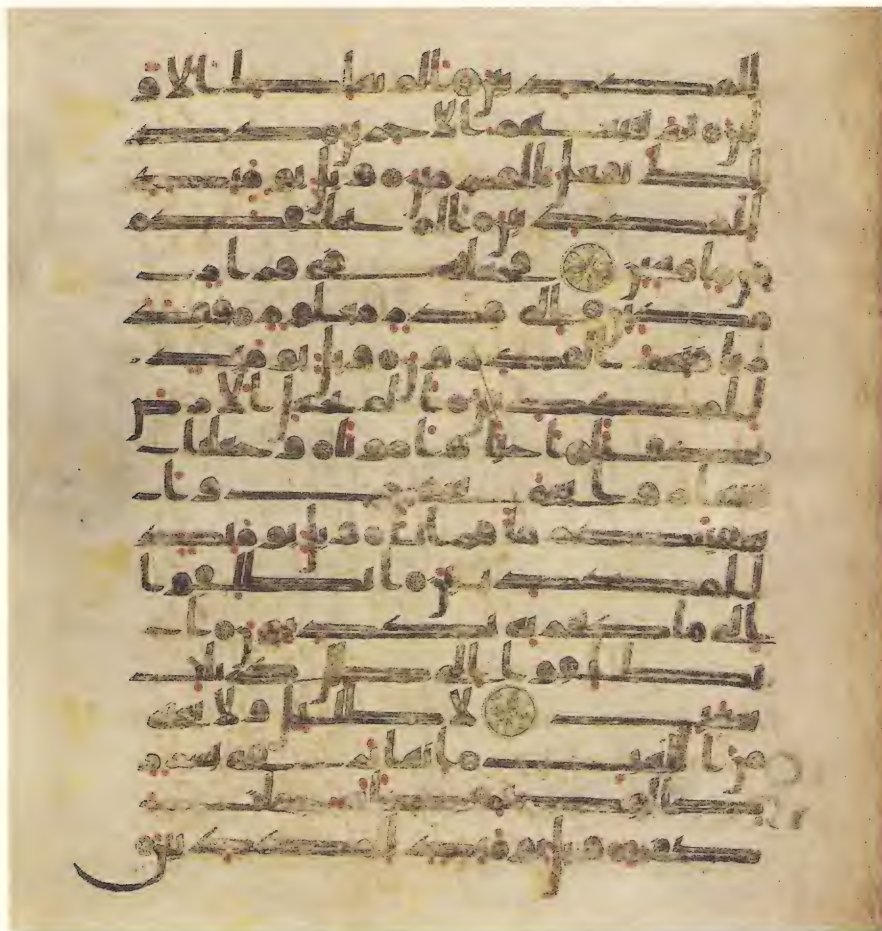 للمكذبين الم نهلك الاو
لين ثم نتبعهم الاخرين كذ
لك نفعل بالمجرمين ويل يومئذ
للمكذبين الم نخلقكم
من ما مهين فجعلنه في قرار
مكين الى قدر معلوم فقد
رنا فنعم القدرون ويل يومئذ
للمكذبين الم نجعل الارض
كفاتا احيا وامواتا وجعلنا
فيها روسي شمخت وا
سقينكم ما فراتا ويل يومئذ
للمكذبين انطلقوا
الى ما كنتم به تكذبون ا
نطلقوا الى ظل ذي ثلث
شعب لا ظليل ولا يغني
من اللهب انها ترمي بشرر
كالقصر كانه جملت
صفر ويل يومئذ للمكذبين